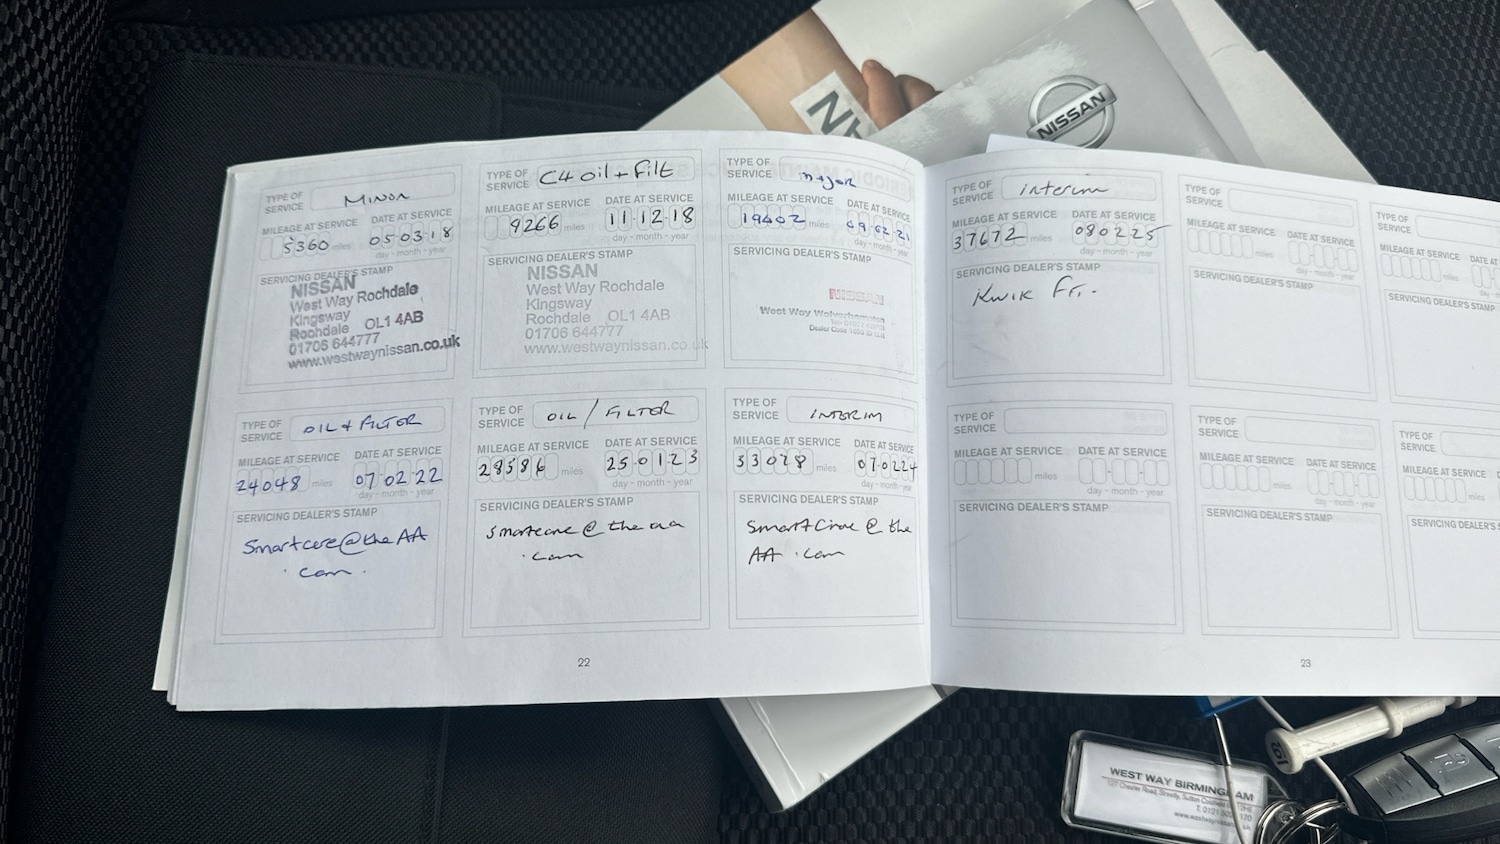 NISSAN
TYPE OF SERVICE Minor
MILEAGE AT SERVICE DATE AT SERVICE
5360 miles 05 03 18
day - month - year
SERVICING DEALER'S STAMP
NISSAN
West Way Rochdale
Kingsway
Rochdale OL1 4AB
01706 644777
www.westwaynissan.co.uk
TYPE OF SERVICE C4 oil + Filt
MILEAGE AT SERVICE DATE AT SERVICE
9266 miles 11 12 18
day - month - year
SERVICING DEALER'S STAMP
NISSAN
West Way Rochdale
Kingsway
Rochdale OL1 4AB
01706 644777
www.westwaynissan.co.uk
TYPE OF SERVICE major
MILEAGE AT SERVICE DATE AT SERVICE
19402 miles 09 02 21
day - month - year
SERVICING DEALER'S STAMP
NISSAN
West Way Wolverhampton
TYPE OF SERVICE interim
MILEAGE AT SERVICE DATE AT SERVICE
37672 miles 080225
day - month - year
SERVICING DEALER'S STAMP
Kwik Fit.
TYPE OF SERVICE
MILEAGE AT SERVICE DATE AT SERVICE
miles
day - month - year
SERVICING DEALER'S STAMP
TYPE OF SERVICE
MILEAGE AT SERVICE DATE AT
miles
SERVICING DEALER'S STAMP
TYPE OF SERVICE OIL + FILTER
MILEAGE AT SERVICE DATE AT SERVICE
24048 miles 07 02 22
day - month - year
SERVICING DEALER'S STAMP
Smartcare@the AA
.com.
TYPE OF SERVICE OIL / FILTER
MILEAGE AT SERVICE DATE AT SERVICE
28586 miles 25 01 23
day - month - year
SERVICING DEALER'S STAMP
Smartcare @ the aa
.com
TYPE OF SERVICE INTERIM
MILEAGE AT SERVICE DATE AT SERVICE
33028 miles 070224
day - month - year
SERVICING DEALER'S STAMP
@ the
AA .com
TYPE OF SERVICE
MILEAGE AT SERVICE DATE AT SERVICE
miles
day - month - year
SERVICING DEALER'S STAMP
TYPE OF SERVICE
MILEAGE AT SERVICE DATE AT SERVICE
miles
day - month - year
SERVICING DEALER'S STAMP
TYPE OF SERVICE
MILEAGE AT SERVICE DATE
miles
SERVICING DEALER'S
22
23
WEST WAY BIRMINGHAM